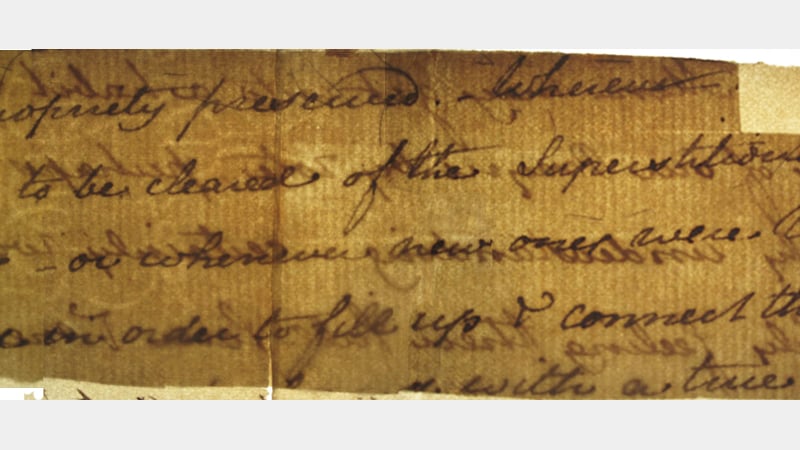 ropriety preserved. - Whereve
to be cleared of the Superstitious
- or whenever new ones were
in order to fill up & connect th
with a true